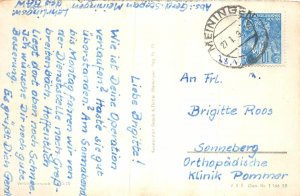 Abs: Gerd Stepan Meiningen
Lehrlinsw. des RAW
Liebe Brigitte!
Wie ist Deine Operation
verlaufen? Hast Du sie gut
überstanden? Am Sonnabend
bis Montag fahren wir mit
der
breitenbach. Hoffentlich
liegt dort oben noch Schnee.
Ich wünsche Dir noch gute
Besserung. Es grüßt Dich Gerd
MEININGEN
27.1.5
An Frl.
Brigitte Roos
Sonneberg
Orthopädische
Klinik Pommer